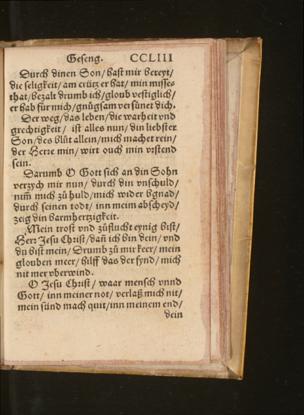 Geseng. CCLIII
Durch dinen Son/hast mir bereyt/
die seligkeit/am crütz er hat/min misses
that/bezalt drumb ich/gloub vestiglich/
er hab für mich/gnůgsam versünet dich.
Der weg/das leben/die warheit vnd
grechtigkeit/ ist alles nun/din liebster
Son/des blůt allein/mich machet rein/
der Herre min/wirt ouch min vrstend
sein.
Darumb O Gott sich an din Sohn
verzych mir nun/durch din vnschuld/
nim̄ mich zů huld/mich wider bgnad/
durch seinen todt/inn meim abscheyd/
zeig din barmhertzigkeit.
Mein trost vnd zůflucht eynig bist/
Herr Jesu Christ/dan̄ ich bin dein/vnd
du bist mein/Drumb zů mir keer/mein
glouben meer/hilff das der fynd/mich
nit mer vberwind.
O Jesu Christ/ waar mensch vnnd
Gott/inn meiner not/verlaß mich nit/
mein sünd mach quit/inn meinem end/
dein